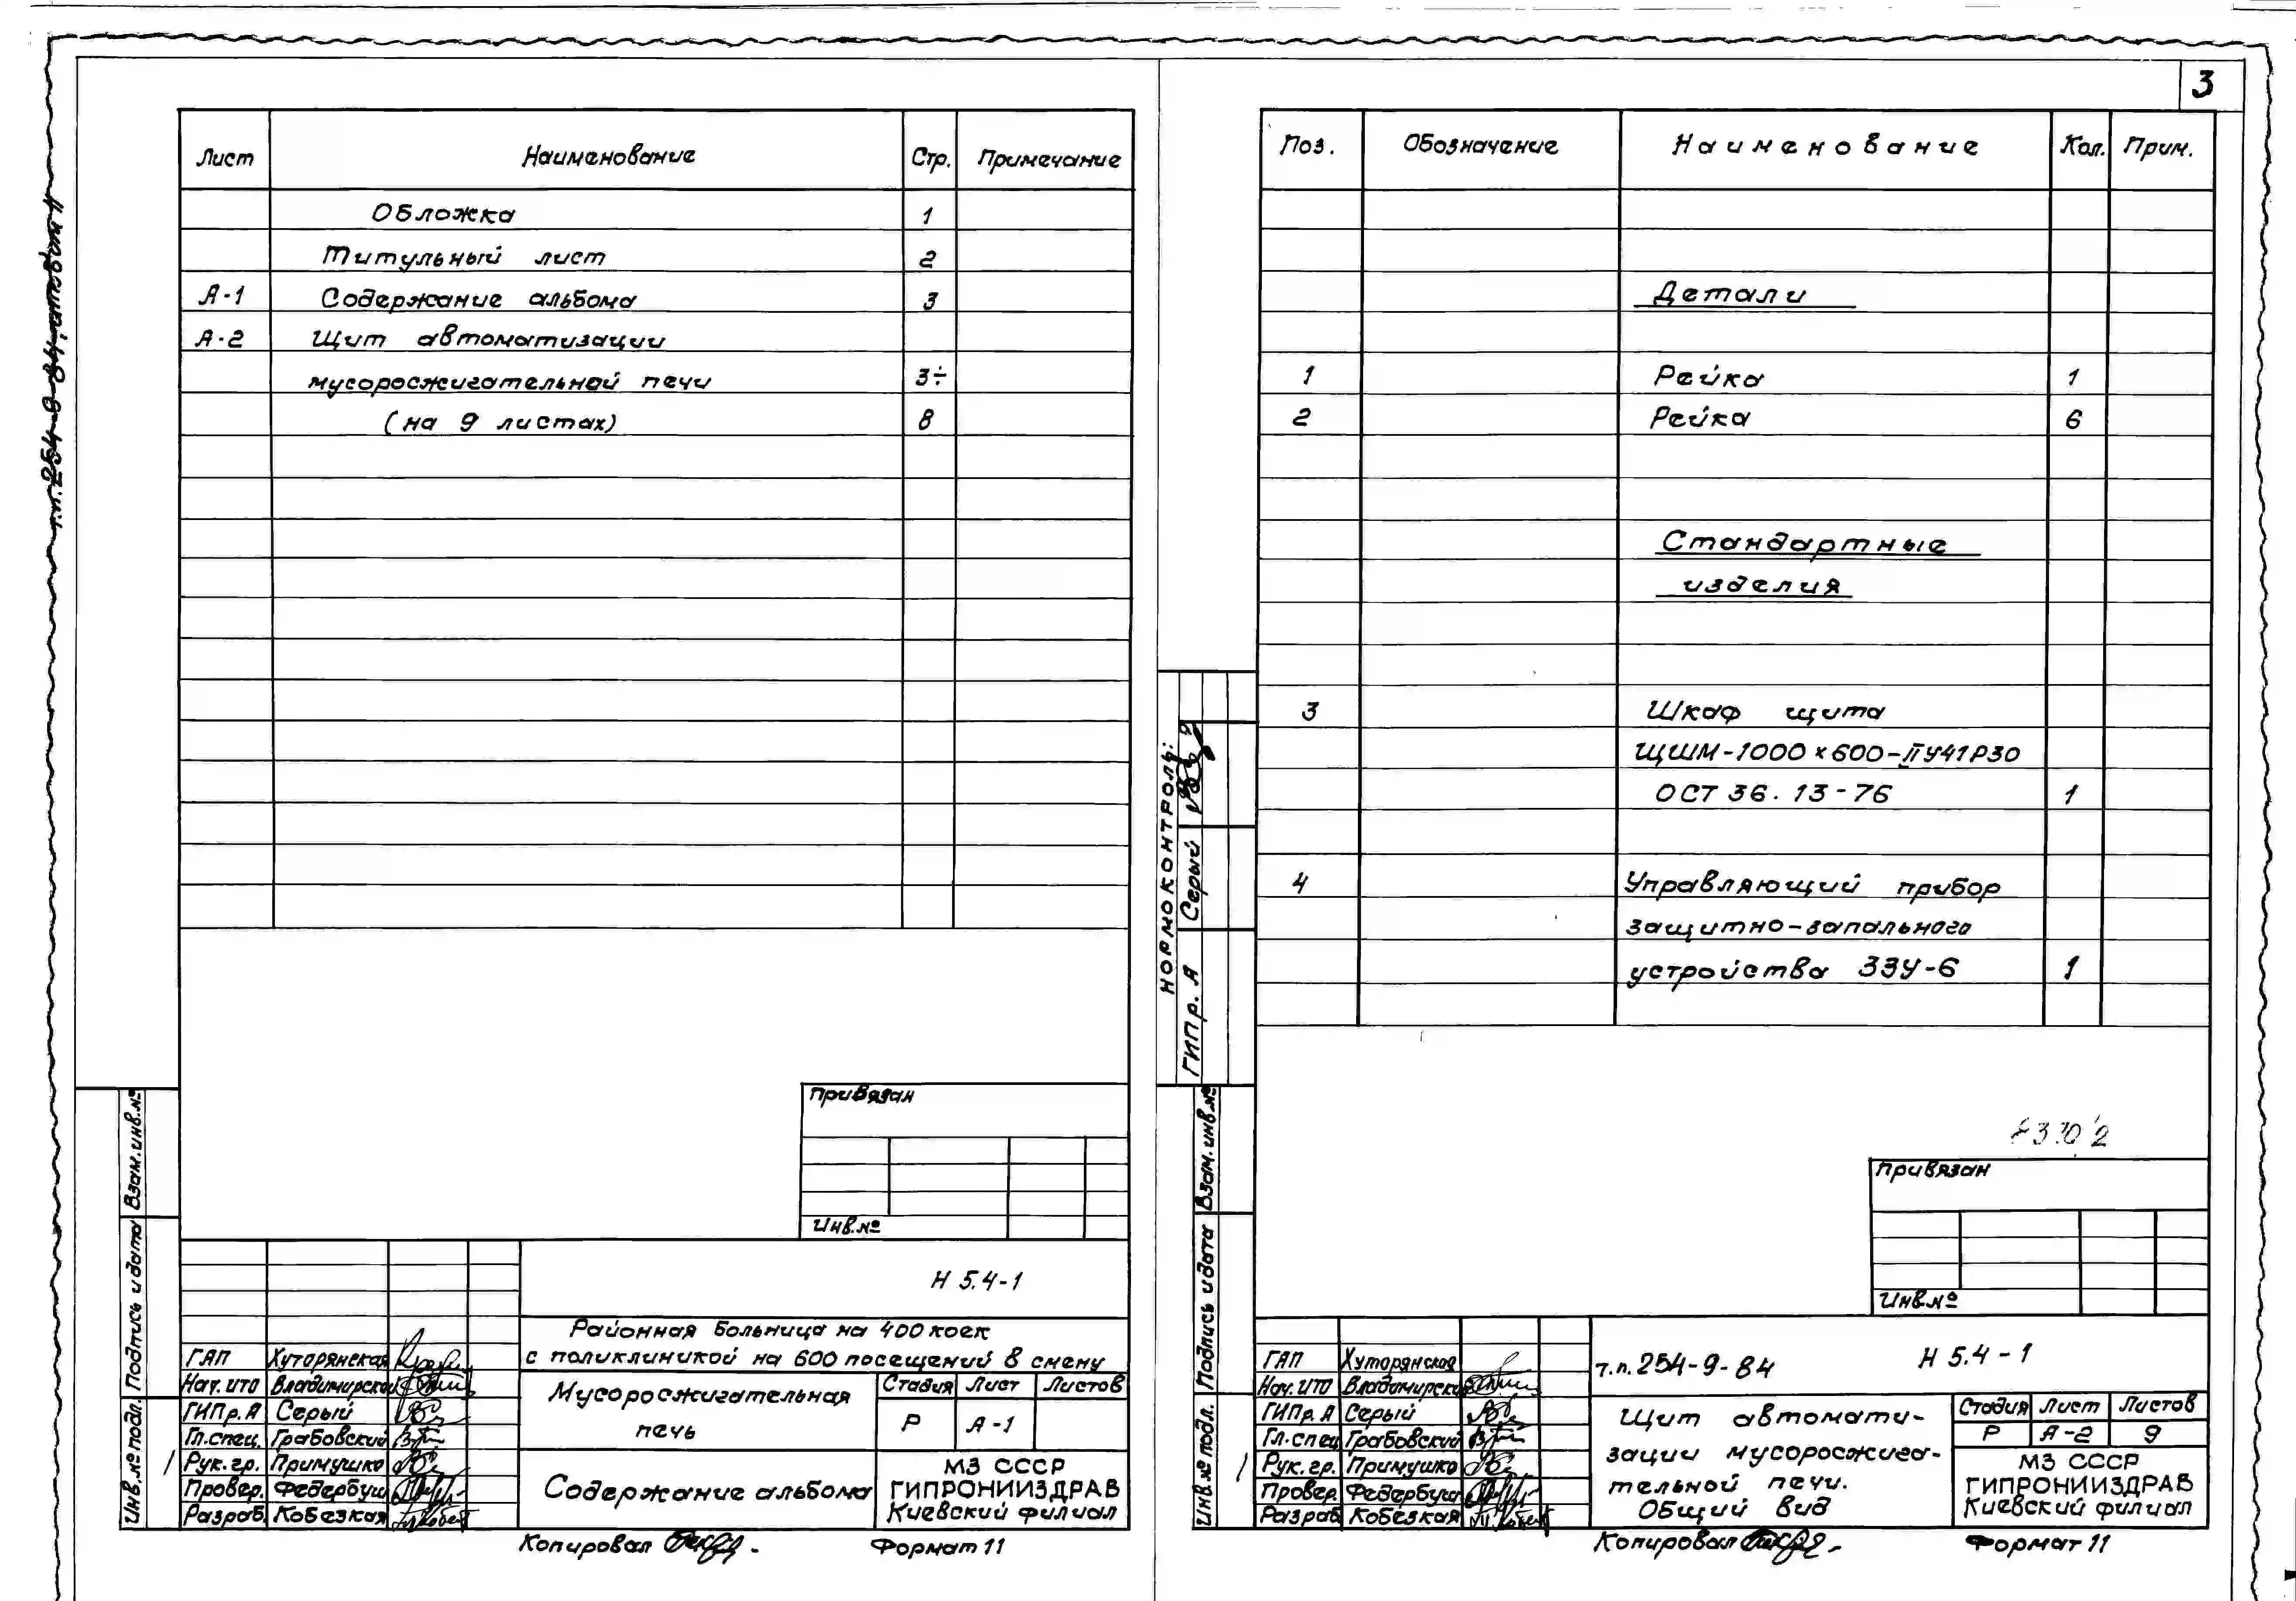 3
Лист Наименование Стр. Примечание
Обложка 1
Титульный лист 2
А-1 Содержание альбома 3
А-2 Щит автоматизации
мусоросжигательной печи 3÷
(на 9 листах) 8
Привязан
Инв.№
Н 5.4-1
Районная больница на 400 коек
с поликлиникой на 600 посещений в смену
ГАП Хуторянская
Нач. ИТО Владимирский
ГИПр. А Серый
Гл.спец. Грабовский
Рук. гр. Примушко
Провер. Федербуш
Разраб. Кобезкая
Мусоросжигательная
печь
Стадия Лист Листов
Р А-1
Содержание альбома
МЗ СССР
ГИПРОНИИЗДРАВ
Киевский филиал
Копировал
Формат 11
Взам. инв.№
Подпись и дата
Инв.№ подл.
т.п. 254-9-84
Поз. Обозначение Наименование Кол. Прим.
Детали
1 Рейка 1
2 Рейка 6
Стандартные
изделия
3 Шкаф щита
ЩШМ-1000х600-ПУ41Р30
ОСТ 36.13-76 1
4 Управляющий прибор
защитно-запального
устройства ЗЗУ-6 1
НОРМОКОНТРОЛЬ:
ГИПр. А Серый
Взам. инв.№
Подпись и дата
Инв.№ подл.
Привязан
Инв.№
т.п. 254-9-84 Н 5.4-1
ГАП Хуторянская
Нач. ИТО Владимирский
ГИПр. А Серый
Гл.спец Грабовский
Рук. гр. Примушко
Провер. Федербуш
Разраб Кобезкая
Щит автомати-
зации мусоросжига-
тельной печи.
Общий вид
Стадия Лист Листов
Р А-2 9
МЗ СССР
ГИПРОНИИЗДРАВ
Киевский филиал
Копировал
Формат 11